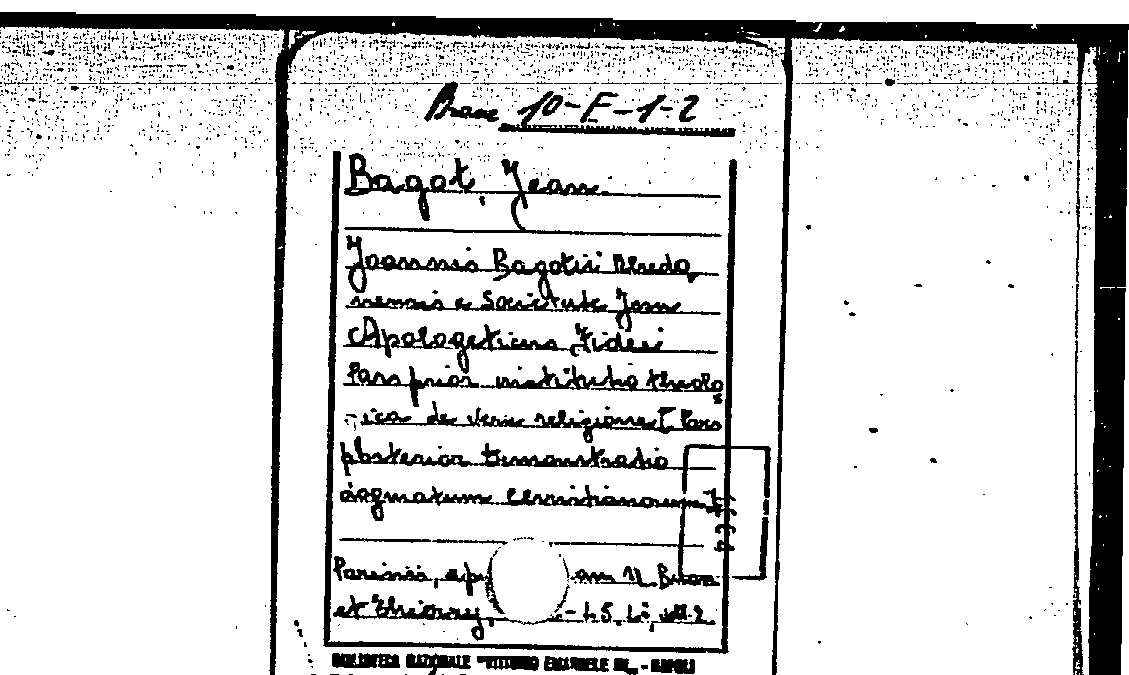 Branc 10-E-1-2
Bagot, Jean.
Joannis Bagotii Rhedo
nensis e Societate Jesu
Apologeticus Fidei
Pars prior institutio theolo
gica de vera religione [ Pars
posterior demonstratio
dogmatum christianorum ]
Parisiis, ap
et Thierry, -45. 2.
BIBLIOTECA NAZIONALE "VITTORIO EMANUELE III" - NAPOLI